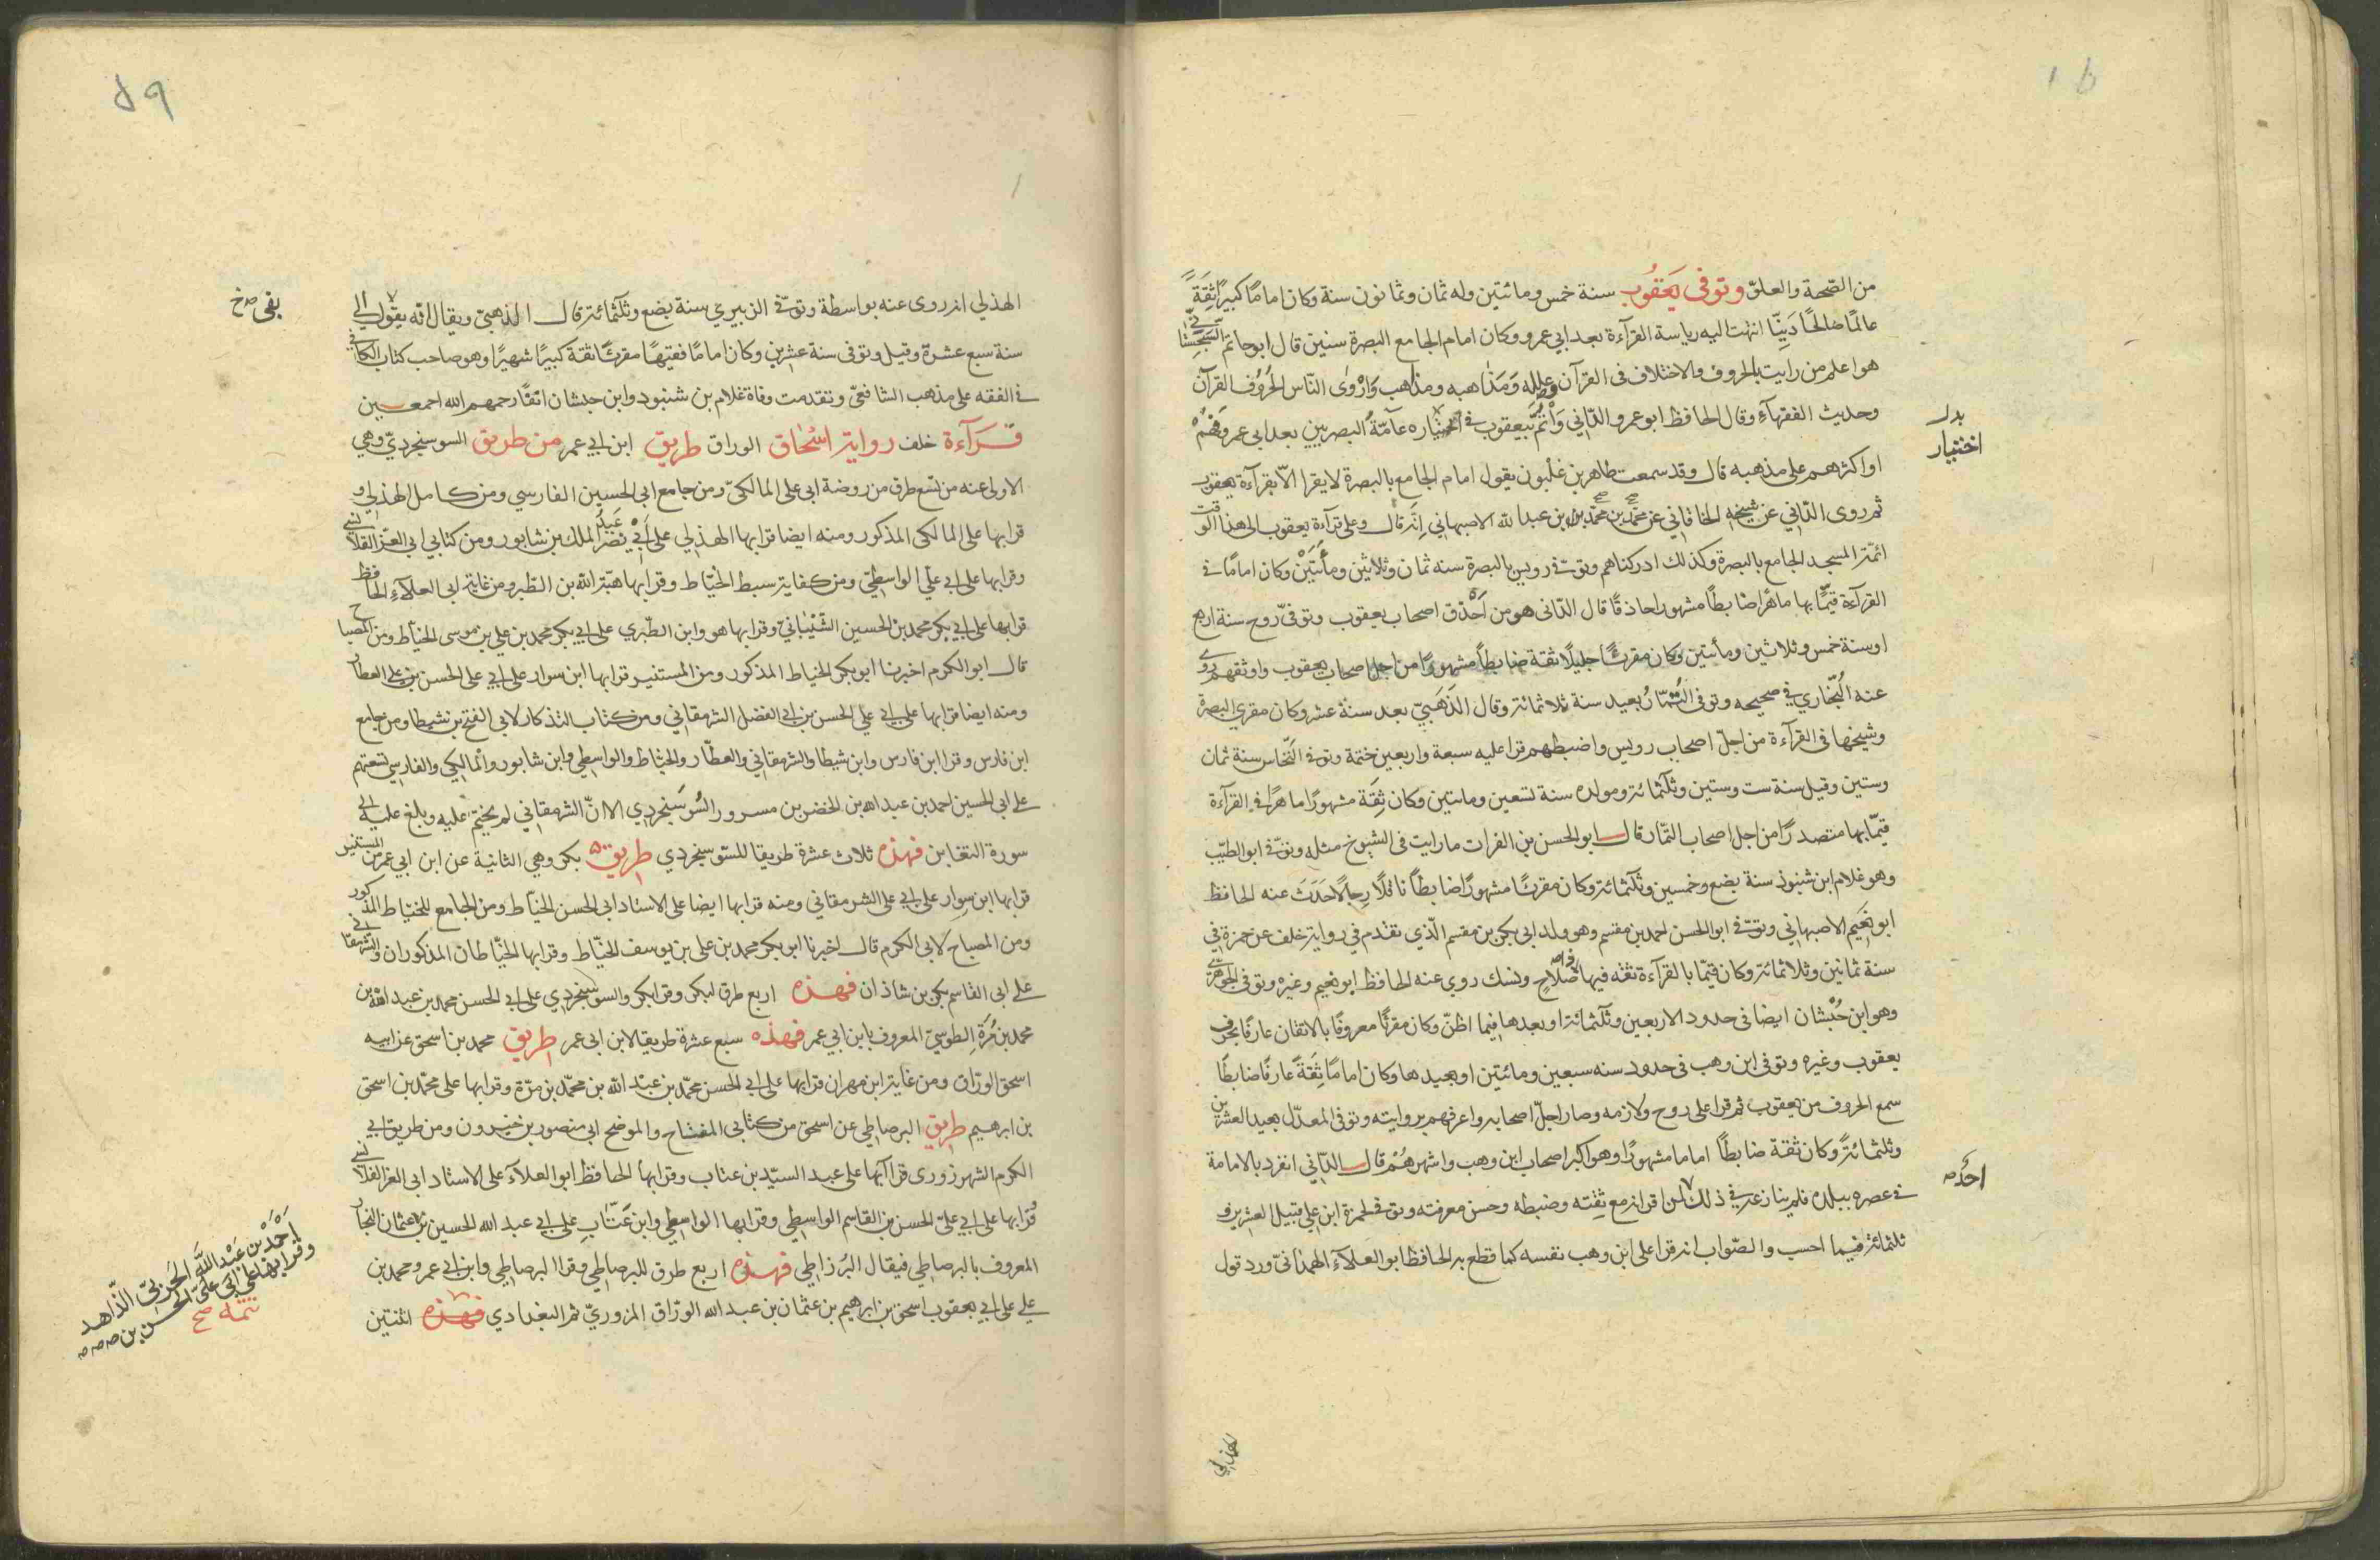 من الصّحة والعلوّ وتوفى يعقوب سنة خمس ومائتين وله ثمان وثمانون سنة وكان اماما كبيرًا ثِقَةً
عالمًا صَالحًا دَيِّنًا انتهت اليه رياسة القرآءة بعد ابي عمرو وكان امام الجامع البصرة سنين قال ابو حاتم السّجستاني
هو اعلم من رايت بالحروف والاختلاف فى القرآن وعلله وَمَذاهبه ومذاهب وَارْوٰى النّاس لحُرُوف القرآن
وحديث الفقهآءِ وقال الحافظ ابو عمرو الدّاني وَأْتَمَّ بيعقوب فى اختياره عآمّةُ البصريين بعد ابى عمرو فهُمْ
بدل
اختيار
او اكثرهم على مذهبه قال وقد سمعت طاهر بن غلْبون يقول امام الجامع بالبصرة لا يقرا الاّ بقرآءة يعقوب
ثم روى الدّاني عن شيخه الخاقاني عن محمّد بن محمّد بن عبد الله الاصبهاني انه قال وعلى قرآءة يعقوب الى هذا الوقت
ائمّة المسجد الجامع بالبصرة وكذلك ادركناهم وتوفّى رويس بالبصرة سنه ثمان وثلاثين ومأئتَيْن وكان امامًا فى
القرآءة قيّمًا بها ماهرًا ضابطًا مشهورا حاذقًا قال الدّانى هو من اَحْذق اصحاب يعقوب وتوفىّ روح سنة اربع
او سنة خمس وثلاثين ومأئتين وكان مقرئًا جليلًا ثقة ضابطًا مشهورًا من اجلّ اصحاب يعقوب واوثقهم روى
عنه البُخَاري فى صحيحه وتوفى التّمّارُ بعيد سنة ثلاثمائة وقال الذَهَبِيّ بعد سنة عشر وكان مقرى البصرة
وشيخها فى القرآءة من اجلّ اصحاب رويس واضبطهم قرا عليه سبعة واربعين ختمة وتوفى النّخاس سنة ثمان
وستين وقيل سنة ست وستين وثلثمائة ومولده سنة تسعين ومائتين وكان ثِقَة مشهورًا ماهرًا فى القرآءة
قيّمًا بها متصدرًا من اجل اصحاب التمّار قال ابو الحسن بن الفرات ما رايت فى الشيوخ مثله وتوفّى ابو الطيّب
وهو غلام ابن شنبوذ سنة بضع وخمسين وثلثمائة وكان مقرئًا مشهورًا ضابطًا ناقلًا رحالًا حَدَثَ عنه الحافظ
ابو نعيم الاصبهاني وتوفّى ابو الحسن احمد بن مقسم وهو ولد ابى بكر بن مقسم الّذي تقدم فى رواية خلف عن حمزة فى
سنة ثمانين وثلاثمائة وكان قيّمًا بالقرآءة ثقه فيها صَلاحٍ ونسك روي عنه الحافظ ابو نعيم وغيره وتوفى الجوهرى
وهو ابن حُبْشان ايضا فى حدود الاربعين وثلثمائة او بعدها فيما اظنّ وكان مقرئًا معروفًا بالاتقان عارفًا بحرف
يعقوب وغيره وتوفى ابن وهب فى حدود سنه سبعين ومائتين او بعيدها وكان امامًا ثِقَةً عارفًا ضابطًا
سمع الحروف من يعقوب ثم قرا على روح ولازمه وصار اجلّ اصحابه واعرفهم بروايته وتوفى المعدّل بعيد العشرين
وثلثمائةً وكان ثقة ضابطًا اماما مشهورًا وهو اكبر اصحاب ابن وهب واشهرهُمْ قال الدّاني انفرد بالامامة
فى عصره ببلده فلم ينازعه فى ذلك احدٌ من اقرانه مع ثِقته وضبطه وحسن معرفته وتوفى حمزة ابن على قبيل العشرين و
احدٌ صح
ثلثمائة فيما احسب والصّواب انه قرا على ابن وهب نفسه كما قطع به الحافظ ابو العلآءِ الهمذانيّ ورد قول
الهذلي
٥٩
الهذلي انه روى عنه بواسطة وتوفّى الزبيري سنة بضع وثلثمائة قال الذهبيّ ويقال انّه بقى الى
بقى صح
سنة سبع عشرة وقيل وتوفى سنة عشرين وكان امامًا فقيهًا مقرئًا ثقة كبيرًا شهيرًا وهو صاحب كتاب الكافى
فى الفقه على مذهب الشافعىّ وتقدمت وفاة غلام بن شنبود وابن حبشان انفًا رحمهم الله اجمعين
قرَآءة خلف رواية اسْحٰاق الوراق طريق ابن ابي عمر من طريق السوسنجرديّ وهي
الاولى عنه من تسع طرق من روضة ابى على المالكىّ ومن جامع ابى الحسين الفارسي ومن كامل الهذلي و
قرا بها على المالكى المذكور ومنه ايضا قرا بها الهذلي على أبي نصر عَبدُ الملك بن شابور ومن كتابي ابى العز القلانسى
وقرا بها على ابي علي الواسطيّ ومن كفاية سبط الخيّاط وقرا بها هبة الله بن الطبر ومن غاية ابى العلآءِ الحافظ
قرا بها على ابي بكر محمد بن الحسين الشّيباني وقرا بها هو وابن الطّبرى على ابي بكر محمد بن علي بن موسى الخياط ومن المصباح
قال ابو الكرم اخبرنا ابو بكر الخياط المذكور ومن المستنير قرا بها ابن سوار على ابي على الحسن بن على العطار
ومنه ايضا قرا بها على ابي علي الحسن بن ابى الفضل الشرمقاني ومن كتاب التذكار لابى الفتح بن شيطا ومن جامع
ابن فارس وقرا ابن فارس وابن شيطا والشرمقاني والعطّار والخيّاط والواسطي وابن شابور والمالكي والفارسي تسعتهم
على ابى الحسين احمد بن عبد الله بن الخضر بن مسرور السُوسَنجردي الا انّ الشرمقاني لم يختم عليه وبلغ عليه الى
سورة التغابن فهذه ثلاث عشرة طريقا للسّوسنجردي طريق بكر وهي الثانية عن ابن ابي عمر من المستنير
قرا بها ابن سِوار على ابي على الشرمقاني ومنه قرا بها ايضا على الاستاد ابى الحسن الخيّاط ومن الجامع للخيّاط المذكور
ومن المصباح لابى الكرم قال اخبرنا ابو بكر محمد بن على بن يوسف الخيّاط وقرا بها الخيّاطان المذكوران والشّرمقانى
على ابى القاسم بكر بن شاذان فهذه اربع طرق لبكر وقرا بكر والسوسنجردي على ابي الحسن محمد بن عبد الله بن
محمد بن مُرّةِ الطوسيّ المعروف بابن ابي عمر فهذه سبع عشرة طريقا لابن ابى عمر طريق محمد بن اسحق عن ابيه
اسحق الورّاق ومن غاية ابن مهران قرا بها على ابي الحسن محمّد بن عبد الله بن محمّد بن مرّة وقرا بها على محمّد بن اسحق
بن ابرهيم طريق البرصاطي عن اسحق من كتابى المفتاح والموضح ابى منصور بن خيرون ومن طريق ابي
الكرم الشهرزورى قرا آبها على عبد السيّد بن عتاب وقرا بها الحافظ ابو العلآءِ على الاستاد ابى العز القلانسى
قرا بها على ابي عليّ الحسن بن القاسم الواسطي وقرا بها الواسطي وابن عَتّابِ على ابي عبد الله الحسين بن عثمان النجار
احَمَد بن عَبْد اللّهِ الحربىّ الزّاهد
وقرا بها على ابى على الحسن بن
تتمة صح
المعروف بالبرصاطي فيقال البُرزاطي فهذه اربع طرق للبرصاطي وقرا البرصاطي وابن ابي عمر ومحمد بن
على على ابي يعقوب اسحق بن ابرهيم بن عثمان بن عبد الله الورّاق المروزيّ ثم البغدادي فهذه اثنتين